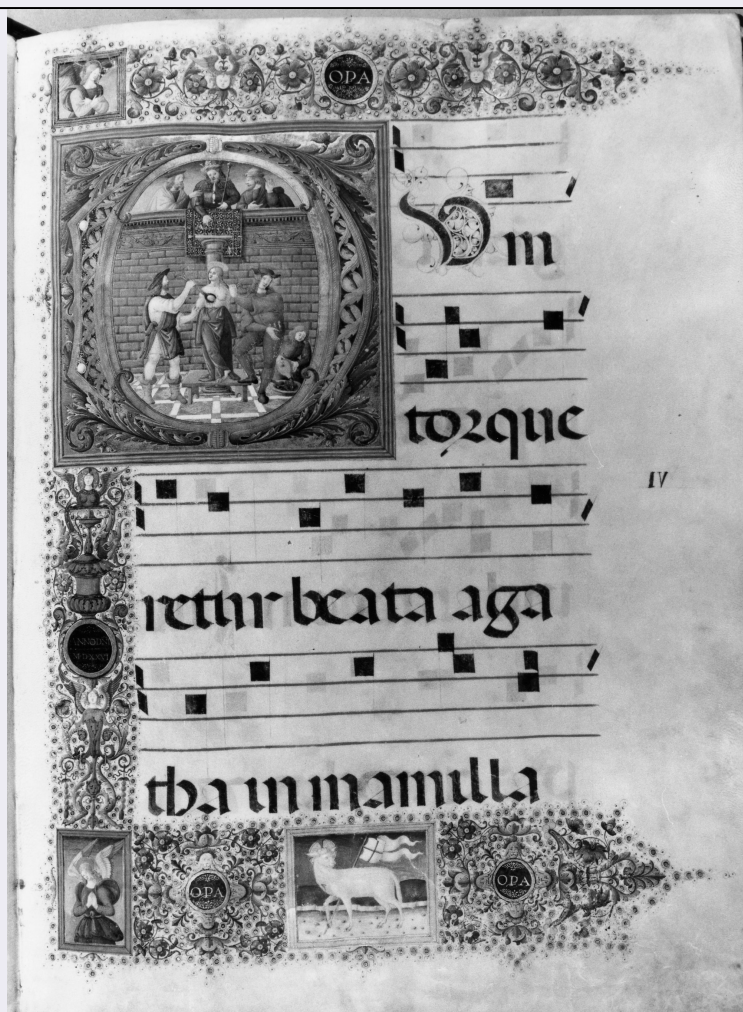 OPA
Dum
torque
IV
retur beata aga
tha in mamilla
OPA
OPA